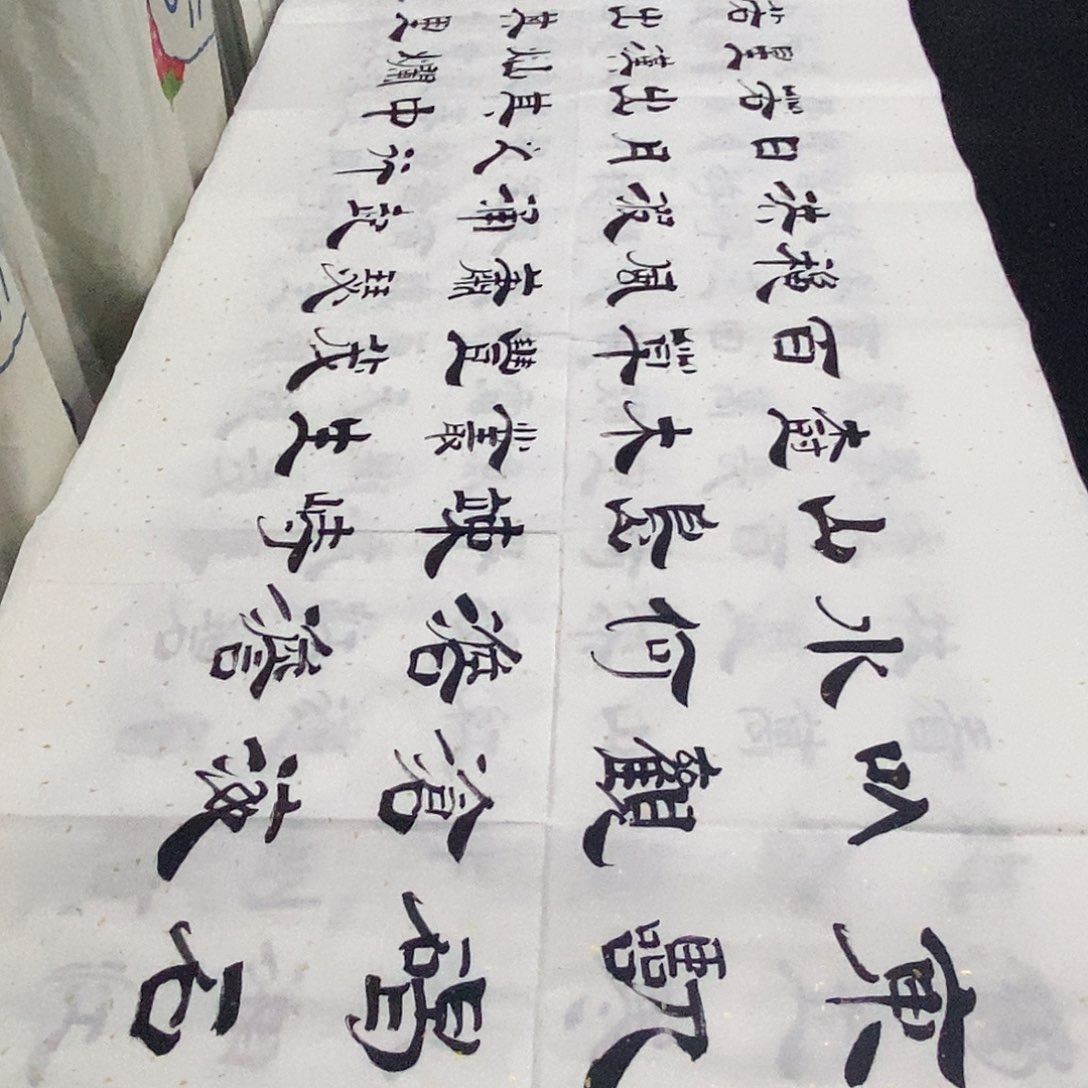 東臨碣石
以觀滄海
水何澹澹
山島竦峙
樹木叢生
百草豐茂
秋風蕭瑟
洪波湧起
日月之行
若出其中
星漢燦爛
若出其裏